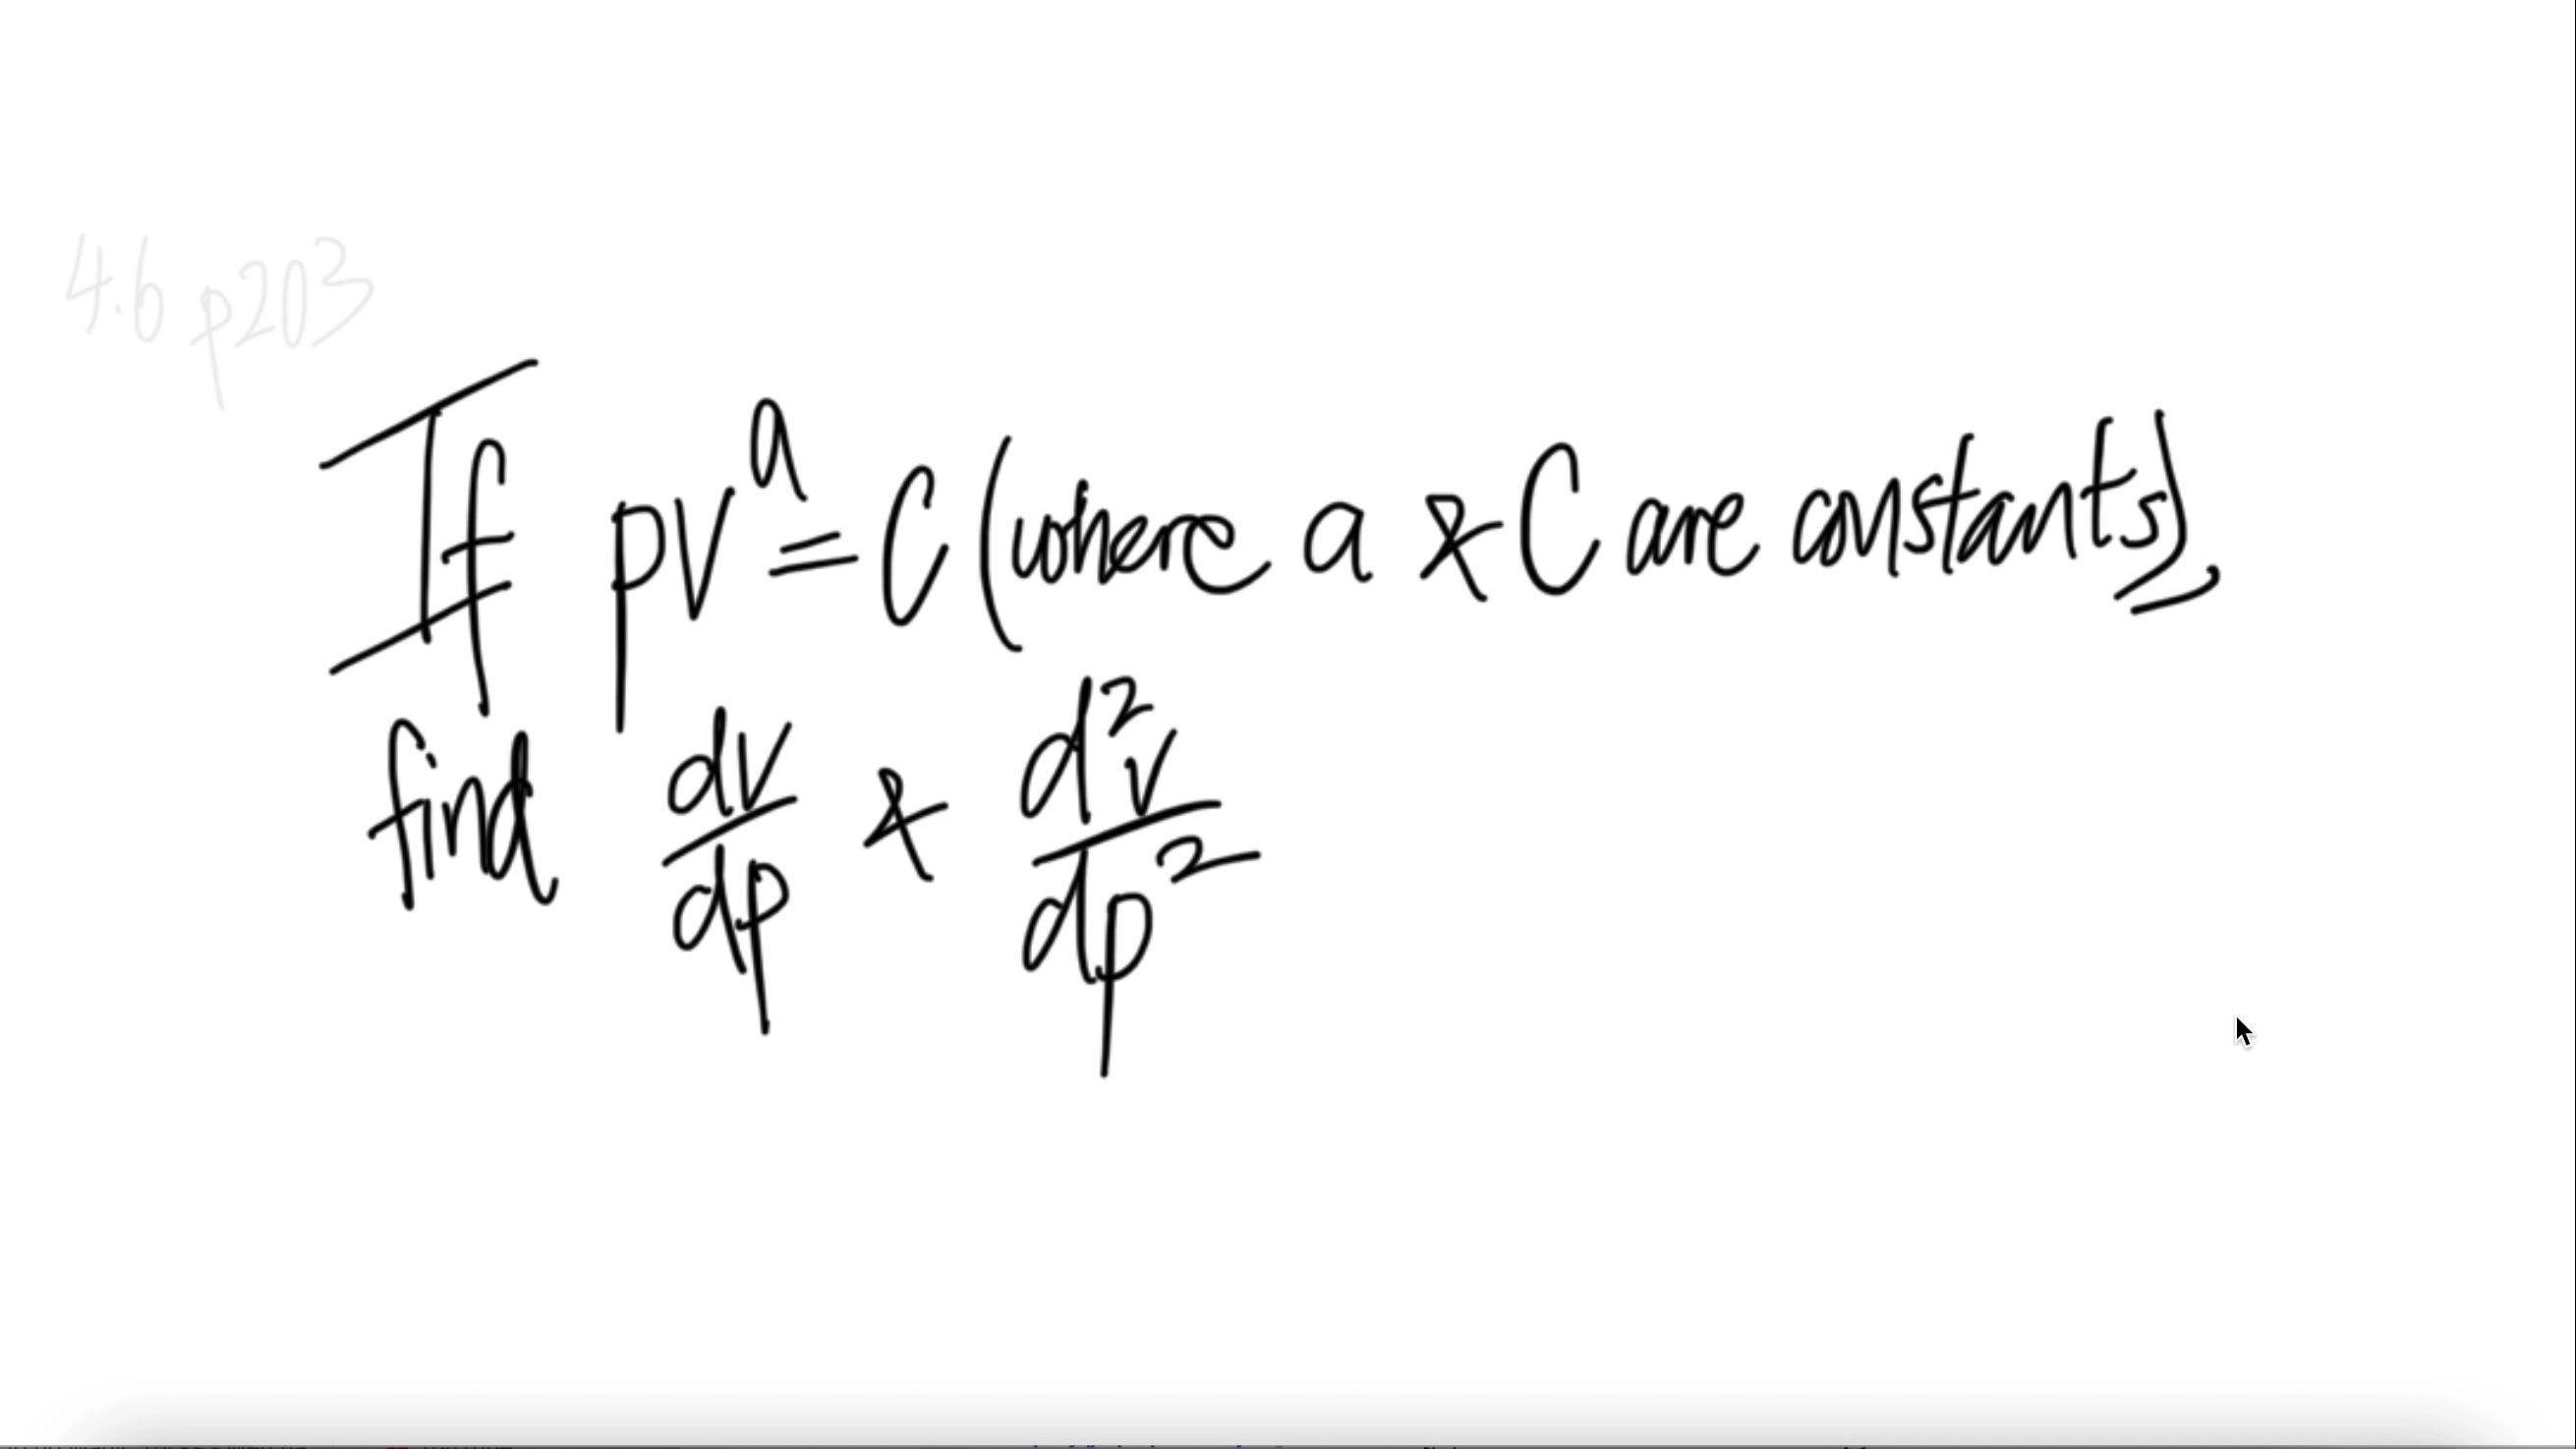 4.6 p203
If pv^a = C (where a & C are constants),
find dv/dp & d²v/dp²